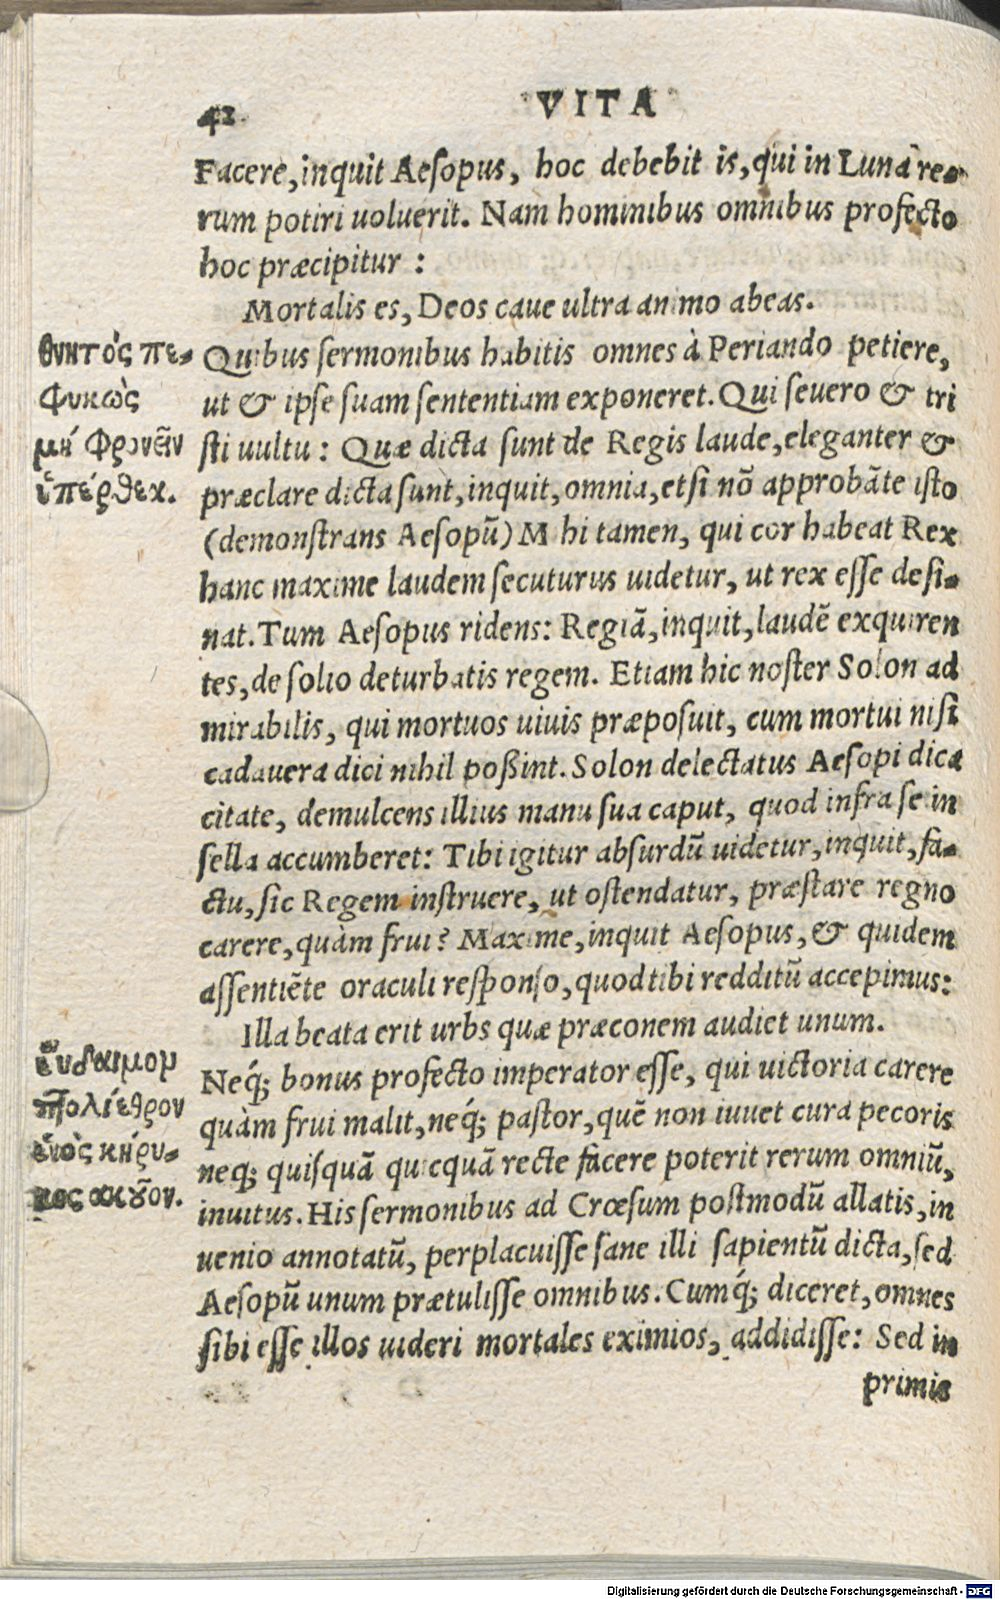 42
VITA
Facere, inquit Aesopus, hoc debebit is, qui in Luna re-
rum potiri uoluerit. Nam hominibus omnibus profecto
hoc præcipitur :
Mortalis es, Deos caue ultra animo abeas.
θνητὸς πε-
φυκὼς
μὴ φρονεῖν
ὑπέρθεκ.
Quibus sermonibus habitis omnes à Periando petiere,
ut & ipse suam sententiam exponeret. Qui seuero & tri
sti uultu : Quæ dicta sunt de Regis laude, eleganter &
præclare dicta sunt, inquit, omnia, etsi nō approbāte isto
(demonstrans Aesopū) Mihi tamen, qui cor habeat Rex
hanc maxime laudem secuturus uidetur, ut rex esse desi-
nat. Tum Aesopus ridens: Regiā, inquit, laudē exquiren
tes, de solio deturbatis regem. Etiam hic noster Solon ad
mirabilis, qui mortuos uiuis præposuit, cum mortui nisi
cadauera dici nihil poßint. Solon delectatus Aesopi dica
citate, demulcens illius manu sua caput, quod infra se in
sella accumberet: Tibi igitur absurdū uidetur, inquit, fa-
ctu, sic Regem instruere, ut ostendatur, præstare regno
carere, quàm frui? Maxime, inquit Aesopus, & quidem
assentiēte oraculi responso, quod tibi redditū accepimus:
Illa beata erit urbs quæ præconem audiet unum.
εὔδαιμον
πτολίεθρον
ἑνὸς κήρυ-
κος ακȣ̃ον.
Neq́; bonus profecto imperator esse, qui uictoria carere
quàm frui malit, neq́; pastor, quē non iuuet cura pecoris
neq; quisquā quicquā recte facere poterit rerum omniū,
inuitus. His sermonibus ad Crœsum postmodū allatis, in
uenio annotatū, perplacuisse sane illi sapientū dicta, sed
Aesopū unum prætulisse omnibus. Cumq́; diceret, omnes
sibi esse illos uideri mortales eximios, addidisse: Sed in
primis
Digitalisierung gefördert durch die Deutsche Forschungsgemeinschaft - DFG